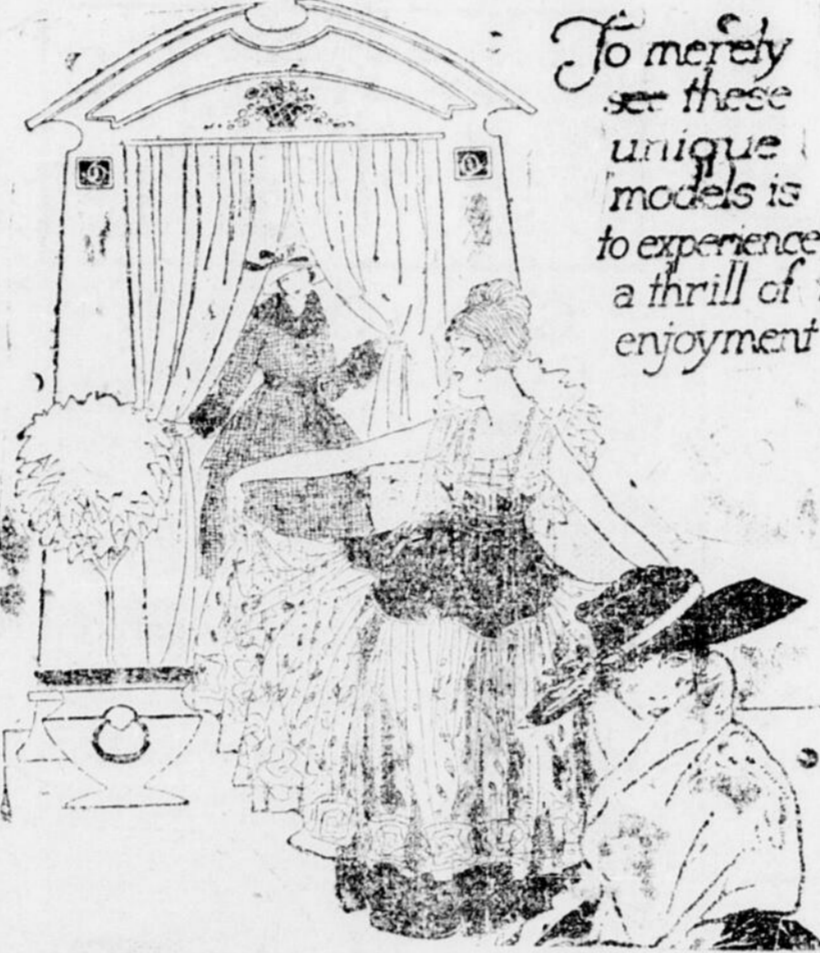 To merely
see these
unique
models is
to experience
a thrill of
enjoyment